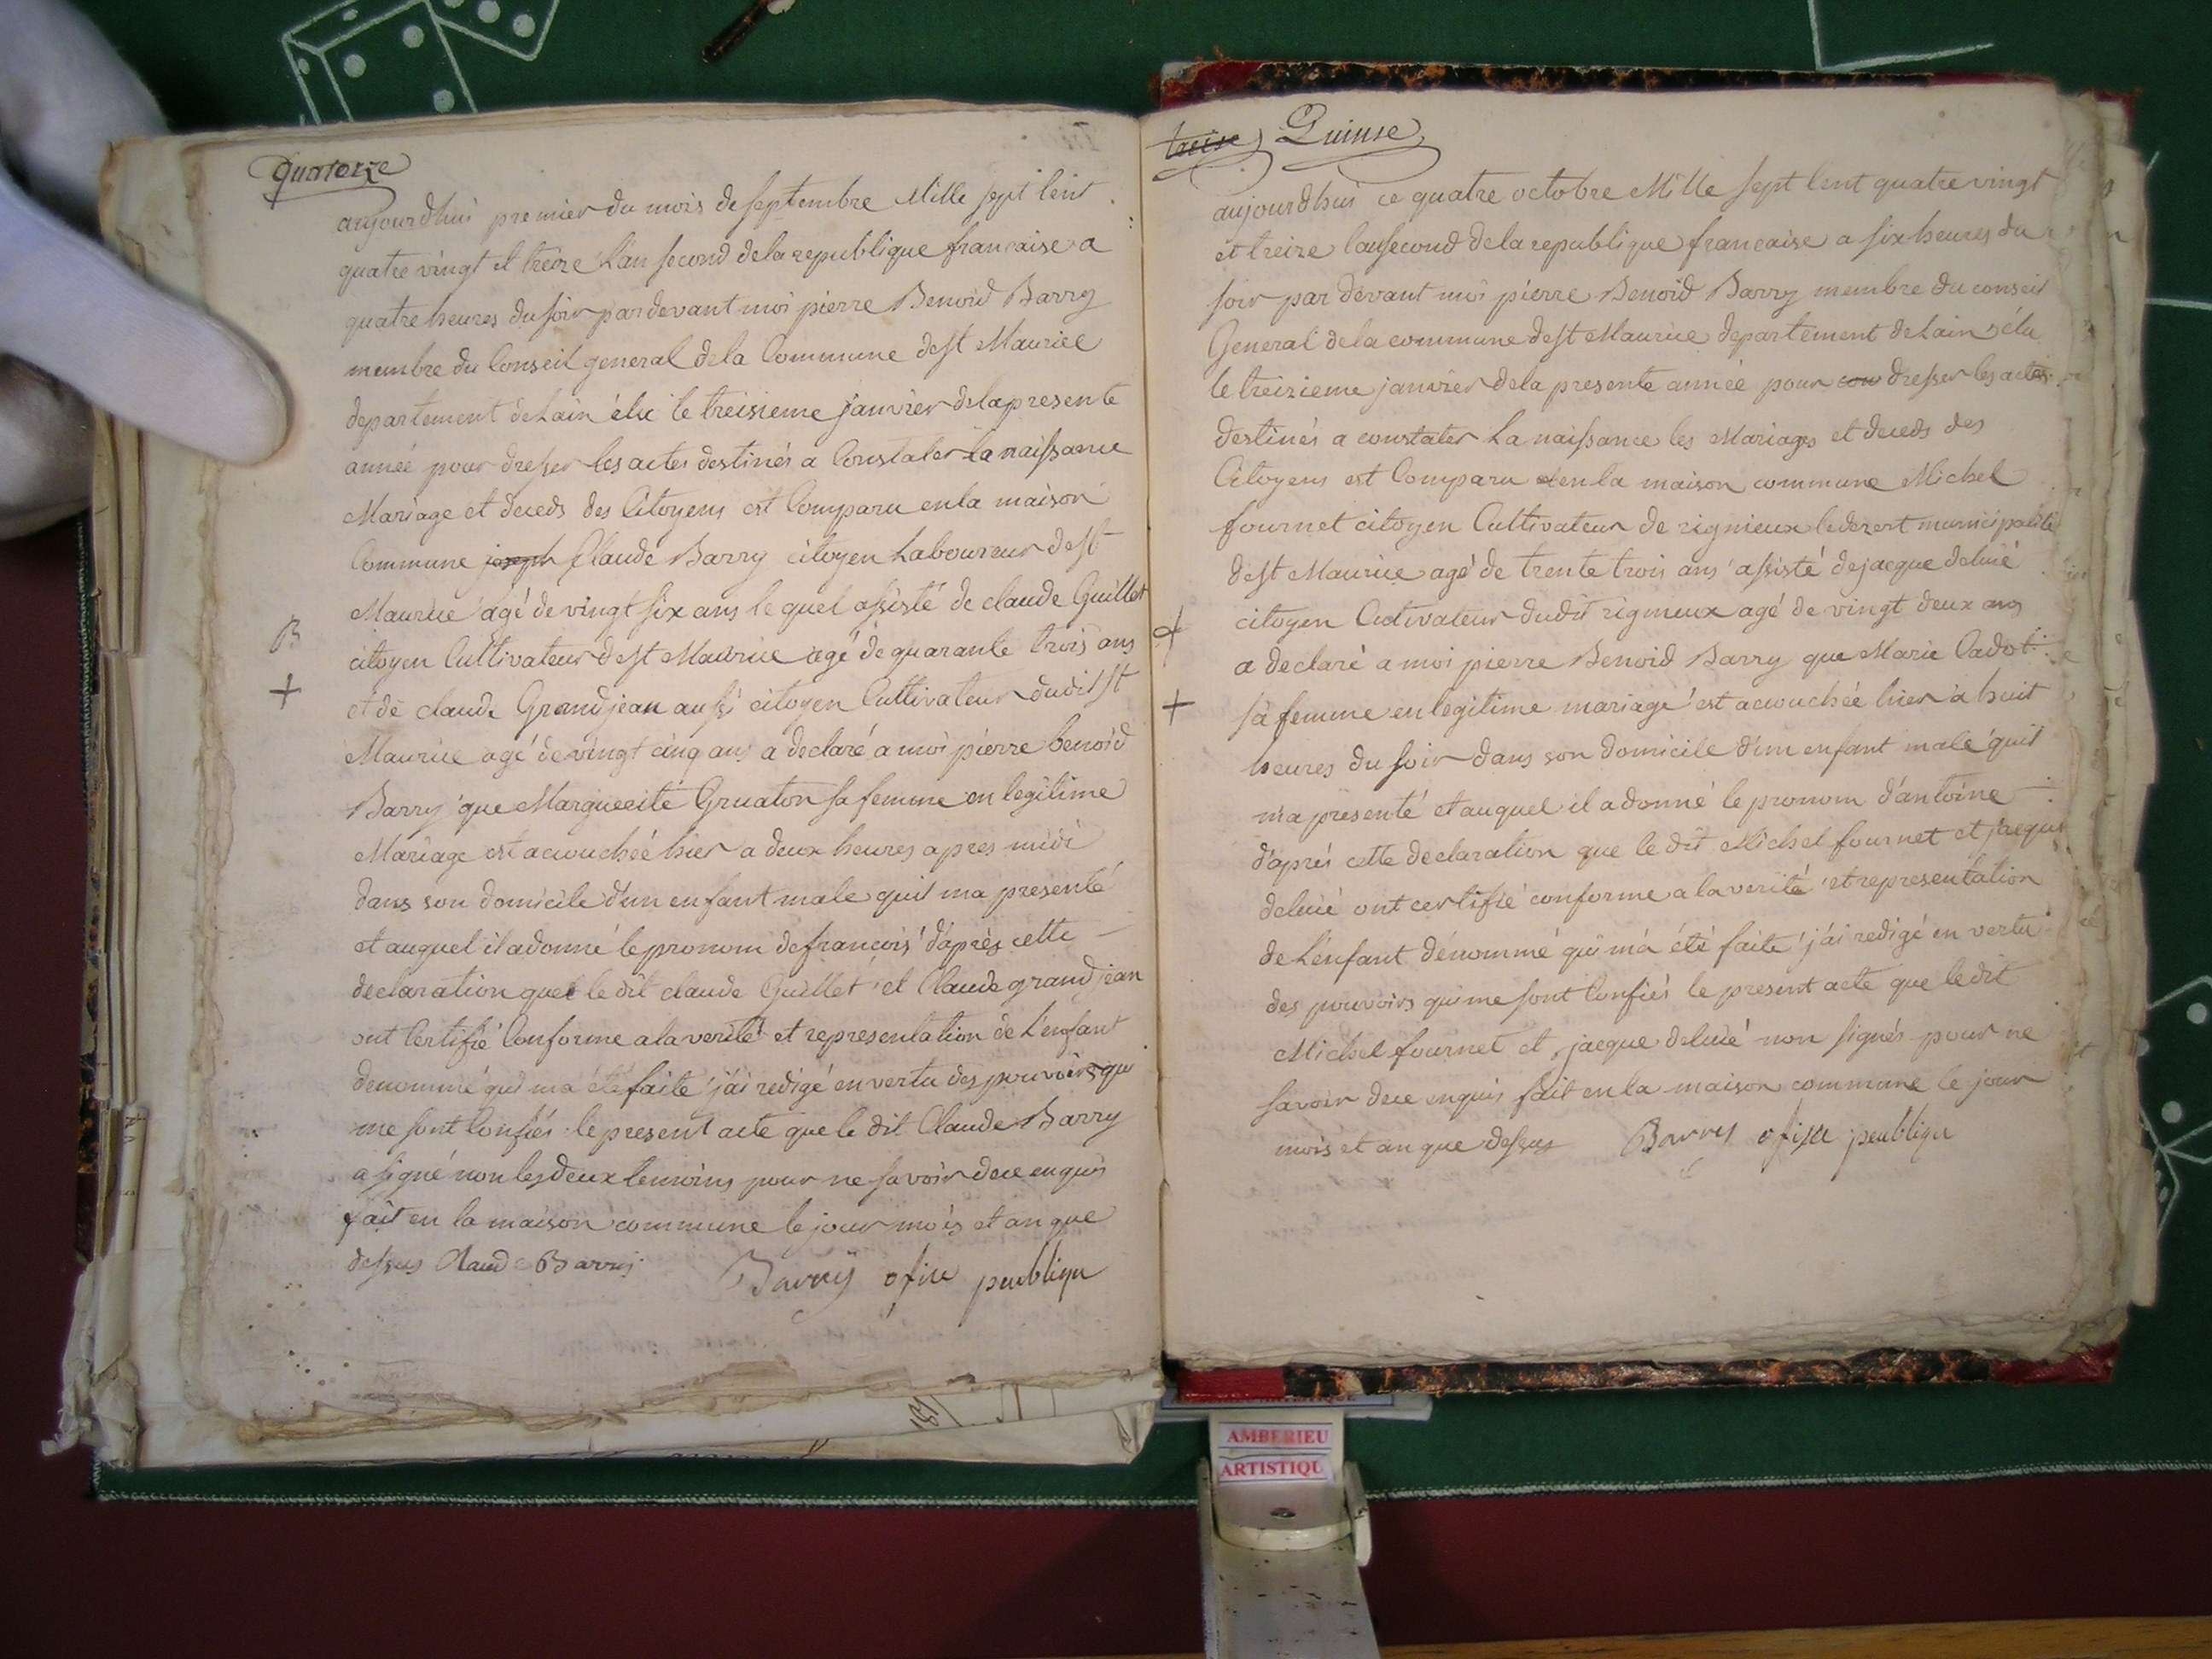 Quatorze
aujourdhui premier du mois de septembre Mille sept Cent
quatre vingt et treize L'an second de la republique francaise a
quatre heures du soir pardevant moi pierre Benoid Barry
membre du Conseil general de la Commune de st Maurice
departement de Lain élu le treisieme janvier de la presente
année pour dresser les actes destinés a Constater La naissance
Mariage et deceds des Citoyens est Comparu en la maison
Commune joseph Claude Barry citoyen Laboureur de st
Maurice agé de vingt six ans le quel assisté de claude Guillet
B
citoyen Cultivateur de st Maurice agé de quarante trois ans
+
et de claude Grandjean aussi citoyen Cultivateur dudit st
Maurice agé de vingt cinq ans a declaré a moi pierre benoid
Barry que Marguerite Gruaton sa femme en legitime
Mariage est acouchée hier a deux heures apres midi
dans son domicile d'un enfant male quil ma presenté
et auquel il a donné le pronom de francois d'aprés cette
declaration que le dit claude Guillet et Claude grandjean
ont Certifié Conforme a la verité et representation de L'enfant
denommé qui ma été faite j'ai redigé en vertu des pouvoirs qui
me sont Confiés le present acte que le dit Claude Barry
a signé non les deux temoins pour ne savoir de ce enquis
fait en la maison commune le jour mois et an que
dessus Claude Barry Barry ofise publique
treise Quinse
aujourdhui ce quatre octobre Mille sept Cent quatre vingt
et treize lan second de la republique francaise a six heures du
soir par devant moi pierre Benoid Barry membre du conseil
General de la commune de st Maurice departement de Lain élu
le treizieme janvier de la presente année pour con dresser les actes
destinés a constater La naissance les Mariages et deceds des
Citoyens est Comparu en la maison commune Michel
fournet citoyen Cultivateur de rignieux le dezert municipalité
de st Maurice agé de trente trois ans assisté de jacque deluié
citoyen Cultivateur dudit rignieux agé de vingt deux ans
a declaré a moi pierre Benoid Barry que Marie Cadot
+
sa femme en legitime mariage est acouchée hier a huit
heures du soir dans son domicile d'un enfant male quil
m'a présenté et auquel il a donné le pronom d'antoine
d'aprés cette declaration que le dit Michel fournet et jacque
deluié ont certifié conforme a la verité et representation
de L'enfant dénommé qui m'a été faite j'ai redigé en vertu
des pouvoirs qui me sont Confiés le present acte que le dit
Michel fournet et jacque deluié non signés pour ne
savoir de ce enquis fait en la maison commune le jour
mois et an que dessus Barry ofise peublique
AMBERIEU
ARTISTIQU